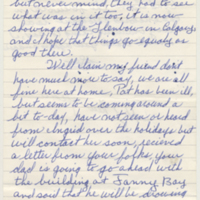 but never mind, they had to see
what was in it too, it is now
showing at the Glenbow in Calgary
and I hope that things go equally as
good there.
Well Jain my friend don't
have much more to say, we are all
fine here at home, Pat has been ill,
but seems to be coming around a
bit to-day, have not seen or heard
from Ingrid over the holidays but
will contact her soon, received
a letter from your folks, your
dad is going to go ahead with
the building at Fanny Bay
and said that he will be drawing